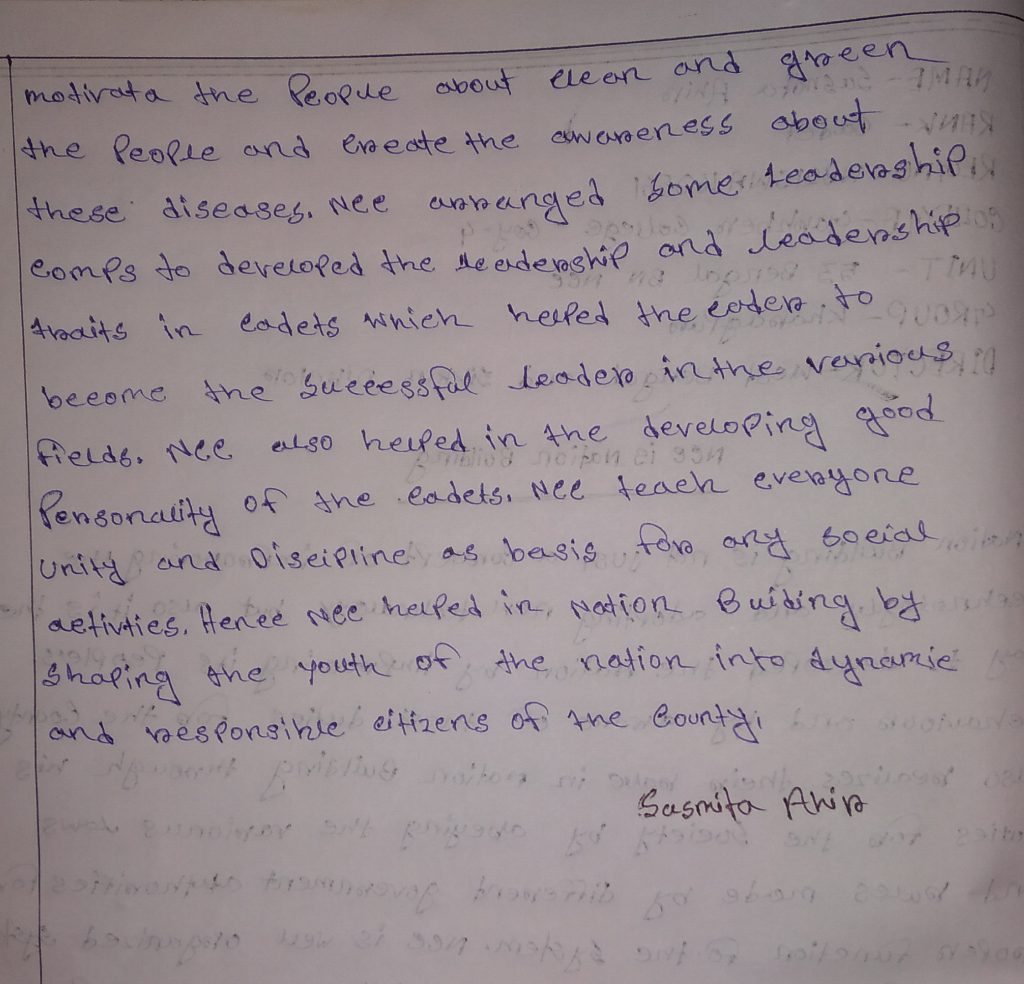 motivata the People about clean and green
the People and create the awareness about
these diseases. NCC arranged some leadership
comps to developed the leadership and leadership
traits in cadets which helped the cader to
become the successful leader in the various
fields. NCC also helped in the developing good
Personality of the cadets. NCC teach everyone
unity and Discipline as basis for any social
activties. Hence NCC helped in Nation Buiding by
shaping the youth of the nation into dynamic
and responsible citizens of the County.
Sasmita Ahir